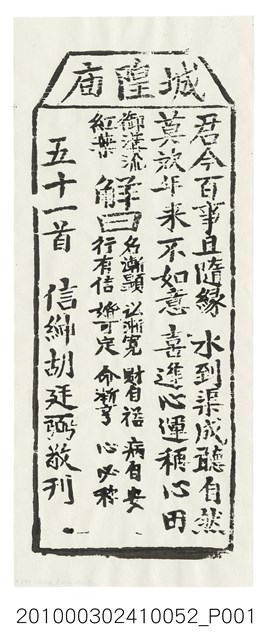 城隍庙
君今百事且隨緣 水到渠成聽自然
莫歎年来不如意 喜逢心運稱心田
御溝流紅葉 解曰 名漸顯 訟漸寬 財自裕 病自安
行有信 婚可定 命漸亨 心必稱
五十一首 信紳胡廷弼敬刊
201000302410052_P001